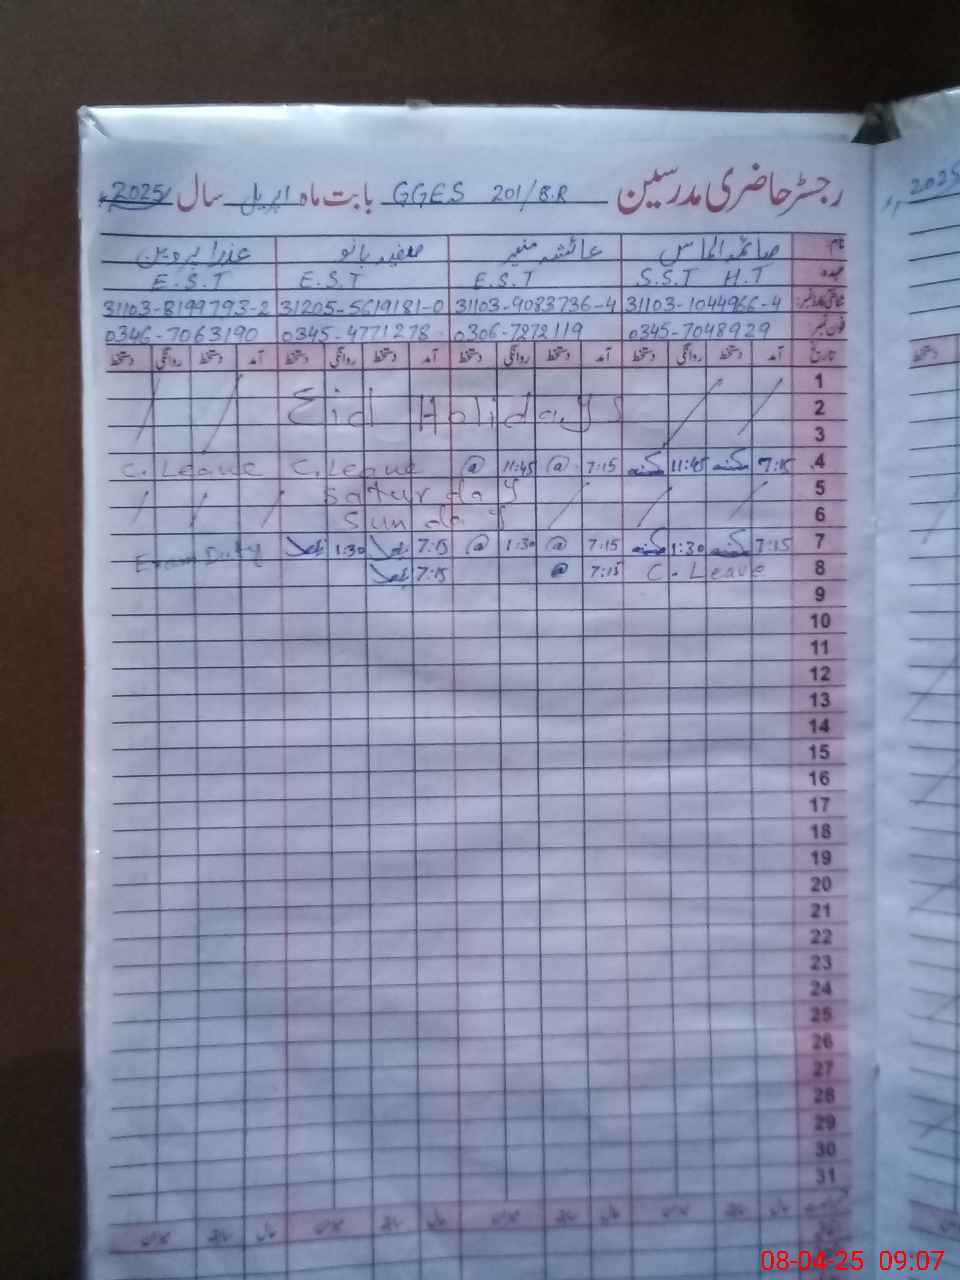 رجسٹر حاضری مدرسین GGES 201/8.R بابت ماہ اپریل سال 2025ء
نام صائمہ الماس عائشہ منیر صفیہ بانو عذرا پروین
عہدہ S.S.T H.T E.S.T E.S.T E.S.T
شناختی کارڈ نمبر 31103-1044966-4 31103-9083736-4 31205-5619181-0 31103-8199793-2
فون نمبر 0345-7048929 0306-7272119 0345-4771278 0346-7063190
تاریخ آمد دستخط روانگی دستخط آمد دستخط روانگی دستخط آمد دستخط روانگی دستخط آمد دستخط روانگی دستخط
1
2 Eid Holidays
3
4 7:15 11:45 7:15 @ 11:45 @ C. Leave C. Leave
5 Saturday
6 Sunday
7 7:15 1:30 7:15 @ 1:30 @ 7:15 1:30 Exam Duty
8 C. Leave 7:15 @ 7:15
9
10
11
12
13
14
15
16
17
18
19
20
21
22
23
24
25
26
27
28
29
30
31
2025
08-04-25 09:07